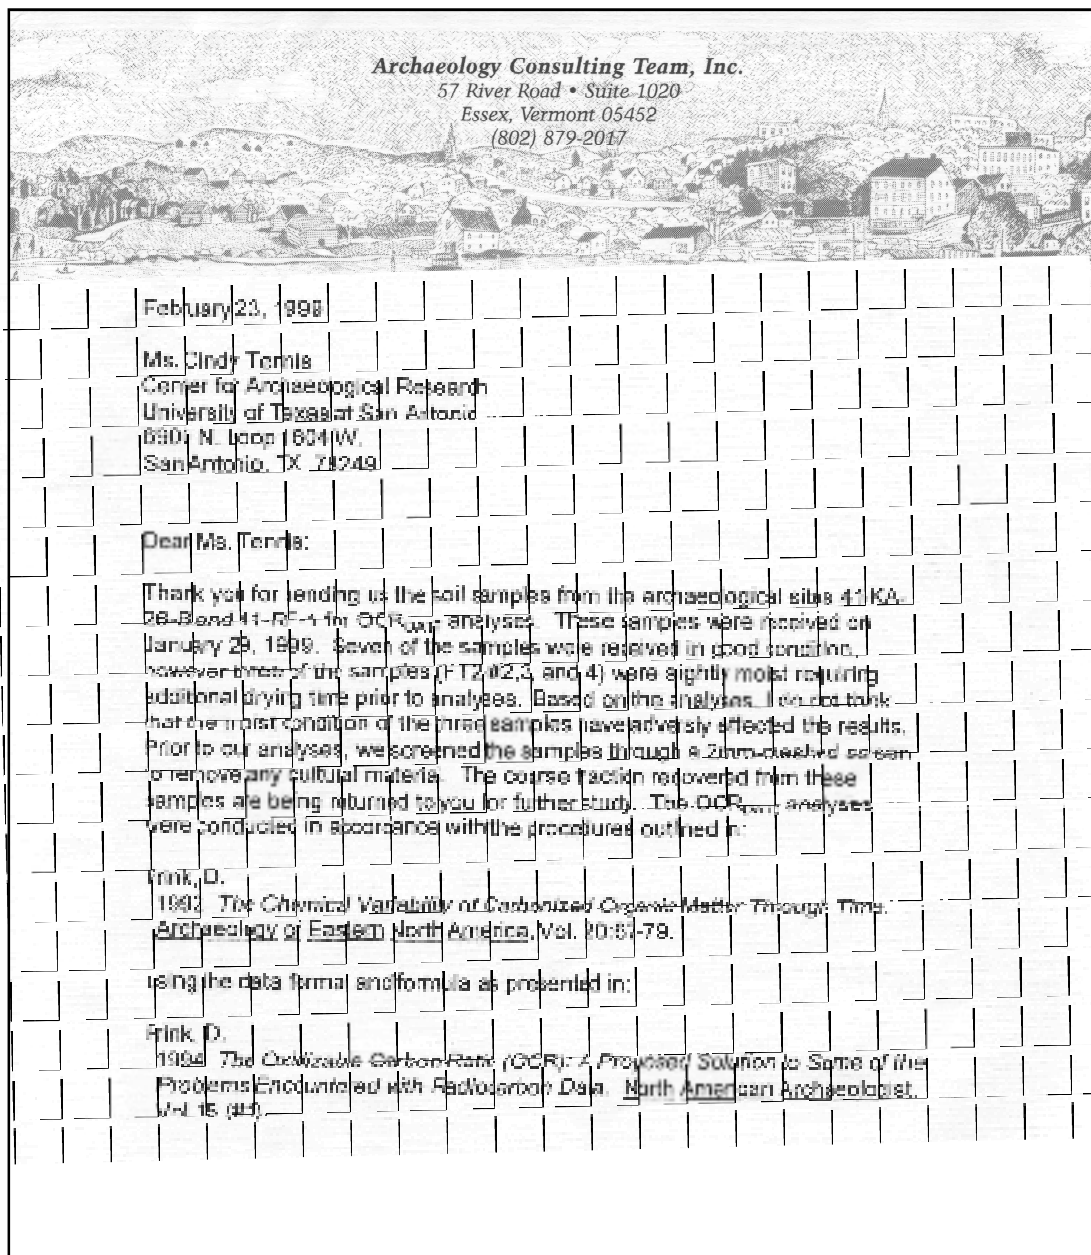 Archaeology Consulting Team, Inc.
57 River Road • Suite 1020
Essex, Vermont 05452
(802) 879-2017
February 23, 1999
Ms. Cindy Tennis
Center for Archaeological Research
University of Texas at San Antonio
N. Loop 1604 W.
San Antonio, TX 78249
Dear Ms. Tennis:
Thank you for sending us the soil samples from the archaeological sites 41-KA-
and for analyses. These samples were received on
January 29, 1999. Seven of the samples were received in good condition,
however three of the samples and 4) were slightly moist requiring
additional drying time prior to analyses. Based on the analyses, I do not think
that the moist condition of the three samples have adversly effected the results.
Prior to our analyses, we screened the samples through a screen
to remove any cultural material. The course fraction recovered from these
samples are being returned to you for further study. The analyses
were conducted in accordance with the procedures outlined in:
Frink, D.
The Chemical Variability of Carbonized Organic Matter Through Time.
Archaeology of Eastern North America, Vol.
using the data format and formula as presented in:
Frink, D.
1994 The Oxidizable Carbon Ratio (OCR): A Proposed Solution to Some of the
Problems Encountered with Radiocarbon Data. North American Archaeologist,
Vol. 15